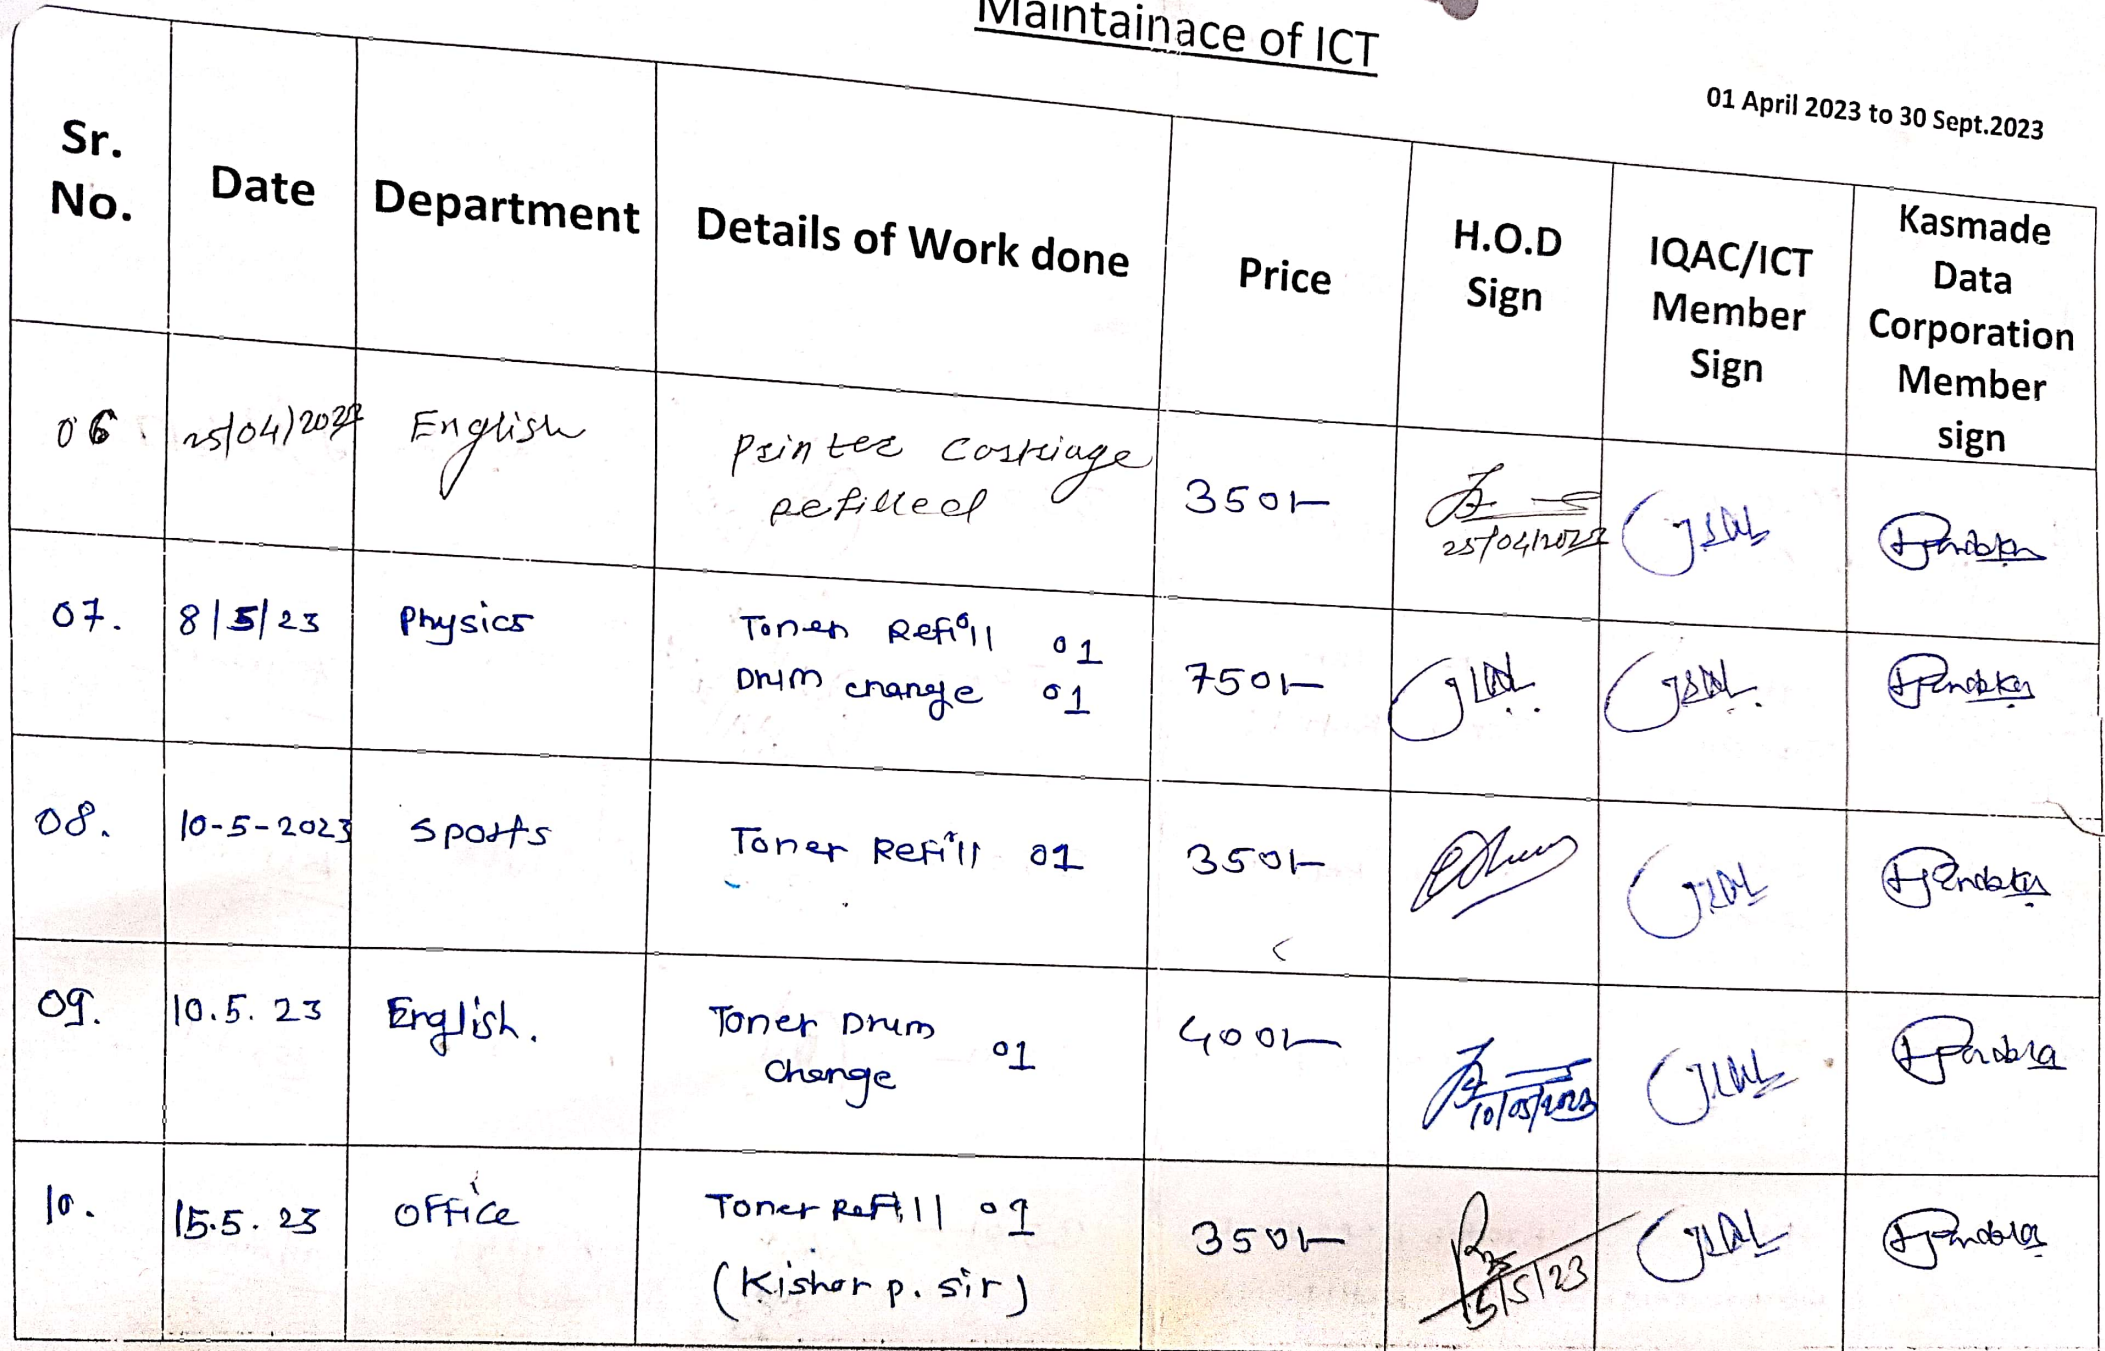 Maintainace of ICT
01 April 2023 to 30 Sept.2023
Sr. No. Date Department Details of Work done Price H.O.D Sign IQAC/ICT Member Sign Kasmade Data Corporation Member sign
06. 25/04/2023 English Printer Cartriage 350/-
refilled
25/04/2023
07. 8/5/23 Physics Toner Refill 01 750/-
Drum change 01
08. 10-5-2023 Sports Toner Refill 01 350/-
09. 10.5.23 English. Toner Drum 01 400/-
Change
10/05/2023
10. 15.5.23 office Toner Refill 01 350/-
(Kishor p. sir)
15/5/23